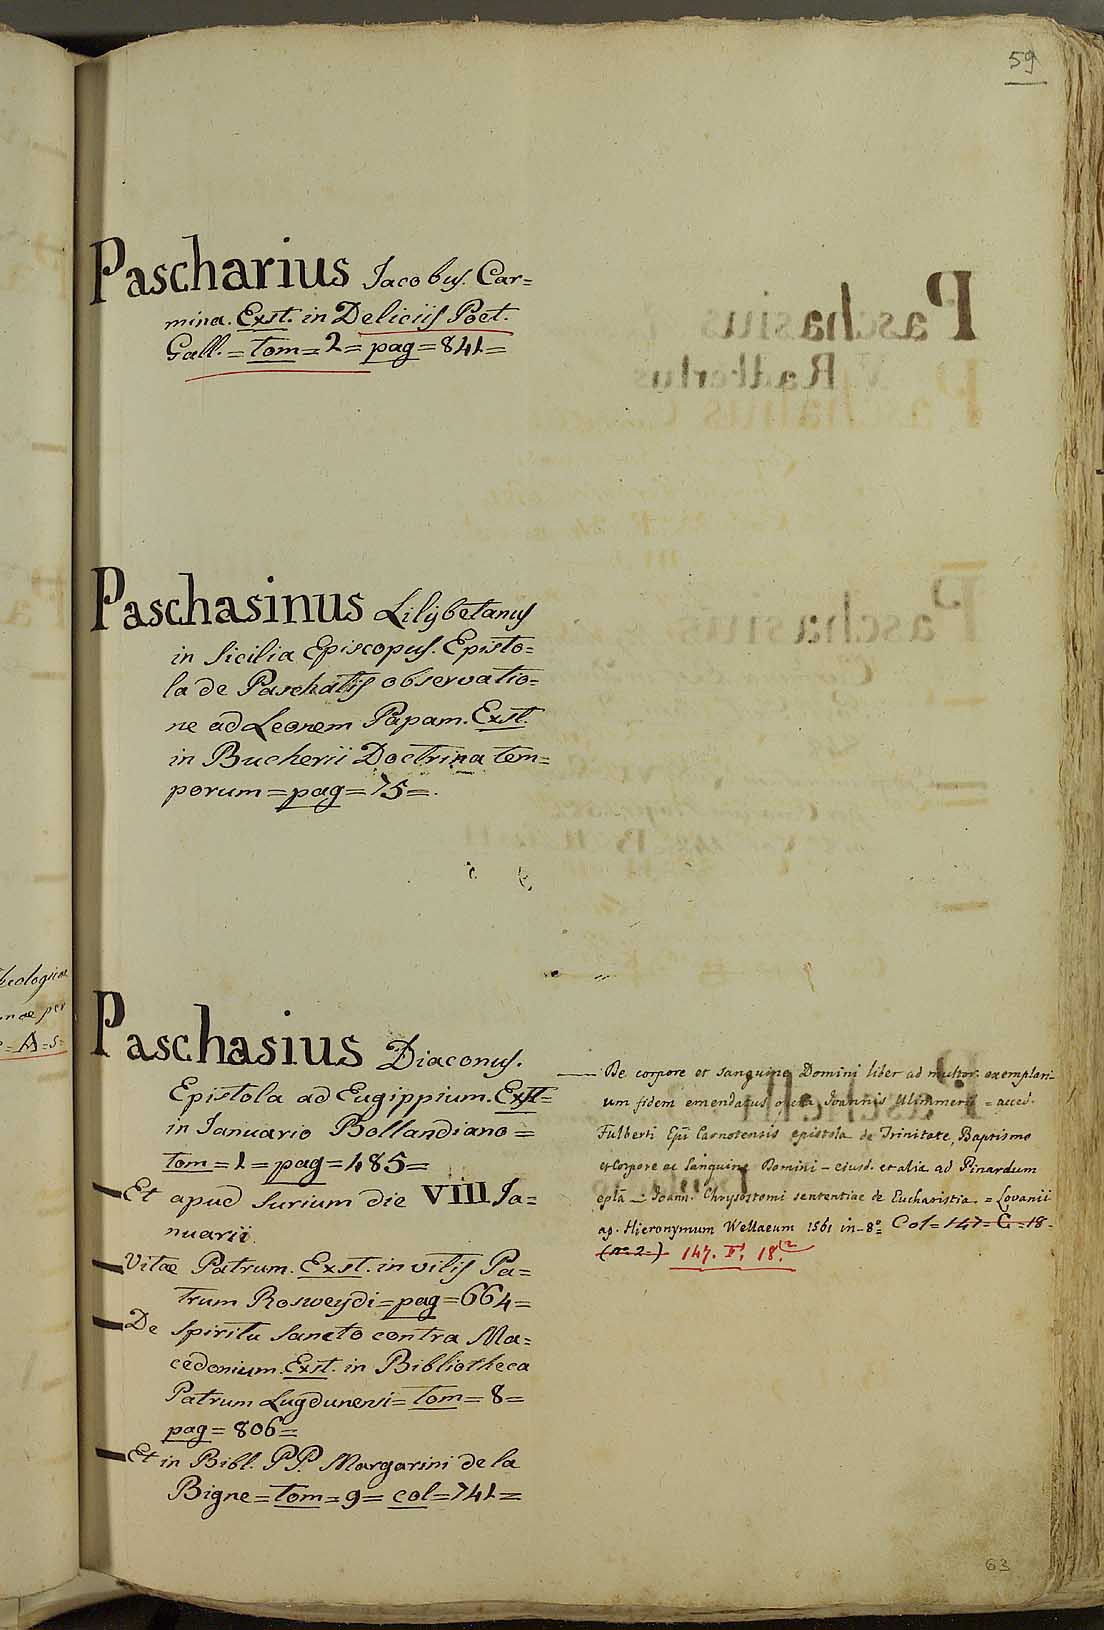 59
Pascharius Jacobus. Car=
mina. Exst. in Deliciis Poet.
Gall. = tom = 2 = pag = 841 =
Paschasinus Lilybetanus
in Sicilia Episcopus. Episto=
la de Paschatis observatio=
ne ad Leonem Papam. Exst.
in Bucherii Doctrina tem=
porum = pag = 75 =.
Paschasius Diaconus.
Epistola ad Eugippium. Exst =
in Januario Bollandiano =
tom = 1 = pag = 485 =
Et apud Surium die VIII Ja=
nuarii.
Vitae Patrum. Exst. in vitis Pa=
trum Rosweydi = pag = 664 =
De Spiritu Sancto contra Ma=
cedonium. Exst. in Bibliotheca
Patrum Lugdunensi = tom = 8 =
pag = 806 =
Et in Bibl. PP. Margarini de la
Bigne = tom = 9 = col = 741 =
De corpore et sanguine Domini liber ad multor. exemplari-
um fidem emendatus opera Joannis Ulimmerii = acced.
Fulberti Epi Carnotensis epistola de Trinitate, Baptismo
et Corpore ac Sanguine Domini - ejusd. et alia ad Finardum
epla - Joann. Chrysostomi sententiae de Eucharistia = Lovanii
ap. Hieronymum Wellaeum 1561 in-8° Col = 147 = C = 18 -
(no 2 -) 147. F. 18.(2
63
Theologicae
per
= A = 5 =